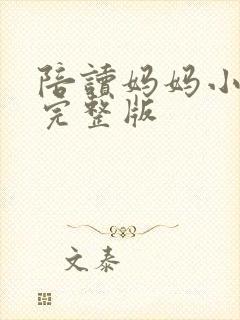 陪讀妈妈小
完整版
文泰